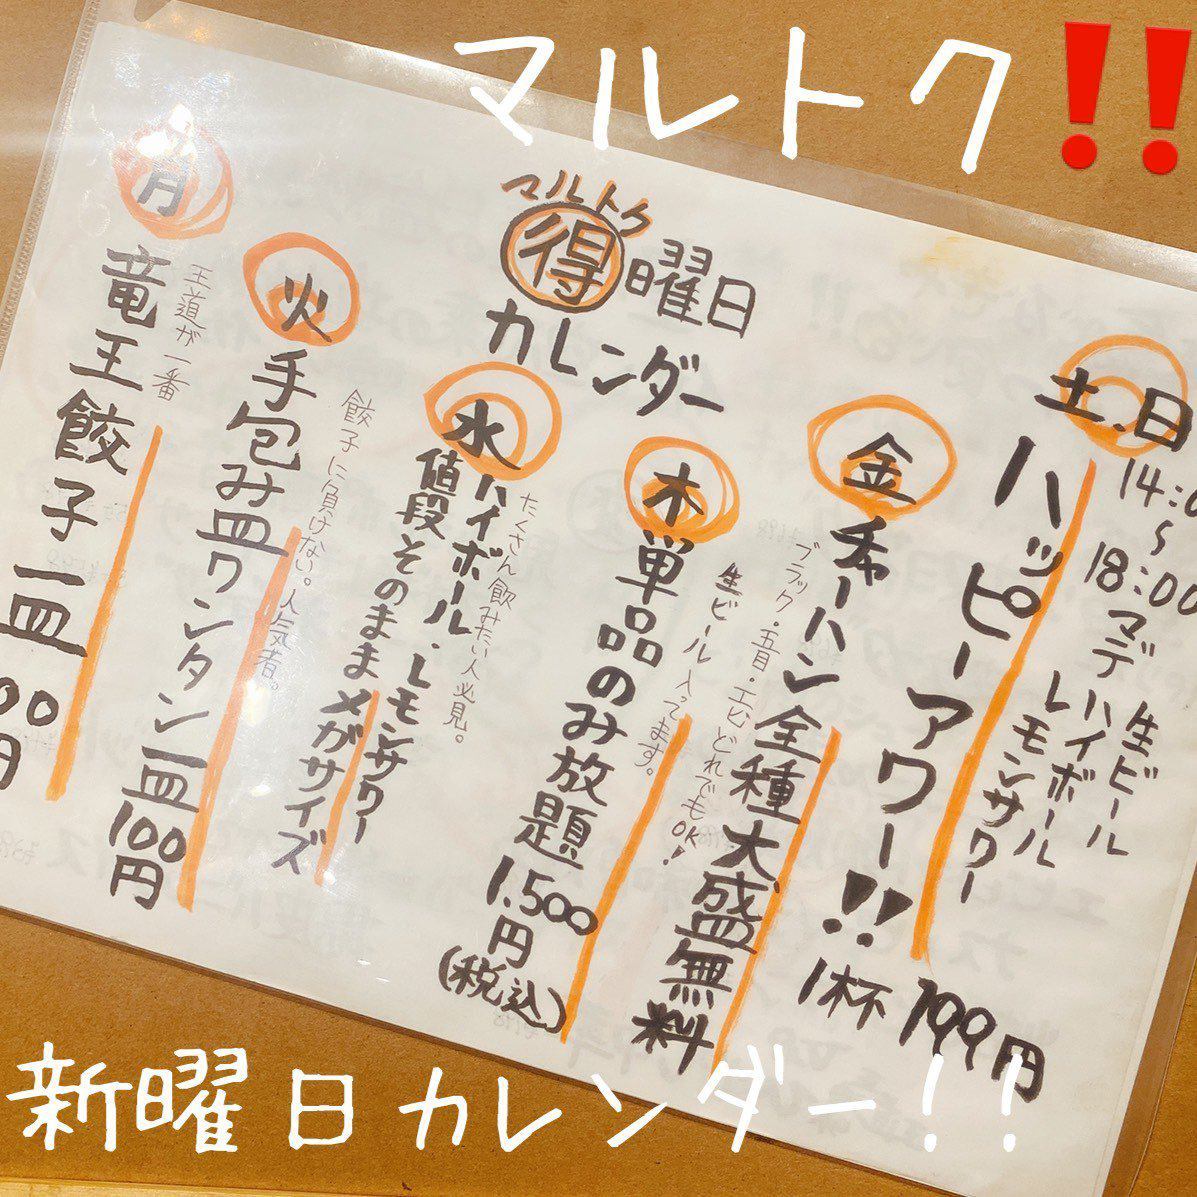 マルトク‼
マルトク
得曜日
カレンダー
土.日
14:0
〜
18:00
マデ
生ビール
ハイボール
レモンサワー
ハッピーアワー!!
1杯199円
金
チャーハン全種大盛無料
ブラック・五目・エビどれでもOK!
木
単品のみ放題
1,500円
(税込)
生ビール入ってます。
水
ハイボール・レモンサワー
値段そのままメガサイズ
たくさん飲みたい人必見。
火
手包み皿ワンタン一皿100円
餃子に負けない。人気者。
月
竜王餃子一皿
00円
王道が一番
新曜日カレンダー!!